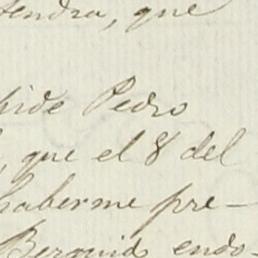 tendra, que
pide Pedro
, que el 8 del
haberme pre-
endo-